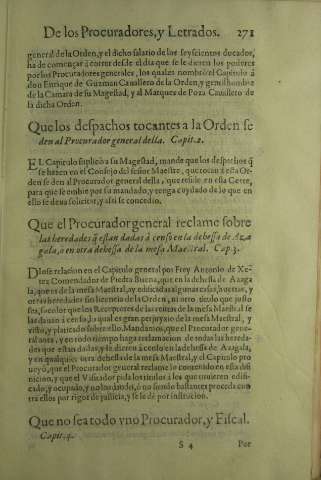 De los Procuradores, y Letrados. 271
general de la Orden, y el dicho salario de los seyscientos ducados,
ha de començar à correr desde el dia que se le dieren los poderes
por los Procuradores generales, los quales nombrò el Capitulo à
don Enrique de Guzman Cauallero de la Orden, y gentilhombre
de la Camara de su Magestad, y al Marques de Poza Cauallero de
la dicha Orden.
Que los despachos tocantes a la Orden se
den al Procurador general della. Capit. 2.
EL Capitulo suplicò a su Magestad, mande que los despachos q̃
se hazen en el Consejo del señor Maestre, que tocan à esta Or-
den se den al Procurador general della, que reside en esta Corte,
para que se embie por su mandado, y tenga cuydado de lo que en
ello se deua solicitar, y assi se concediò.
Que el Procurador general reclame sobre
las heredades q̃ estan dadas à censo en la dehessa de Aza
gala, o en otra dehessa de la mesa Maestral. Cap. 3.
Diose relacion en el Capitulo general por Frey Antonio de Xe-
rez Comendador de Piedra Buena, que en la dehessa de Azaga
la, que es de la mesa Maestral, ay edificadas algunas casas, huertas, y
otras heredades sin licencia de la Orden, ni otro titulo que justo
sea, so color que los Receptores de las rentas de la mesa Maestral se
las dauan à censo, lo qual es gran perjuyzio de la mesa Maestral, y
visto, y platicado sobre ello, Mandamos, que el Procurador gene-
ral aora, y en todo tiempo haga reclamacion de todas las hereda-
des que estan dadas, y se dieren à censo en la dehessa de Azagala,
y en qualquier otra dehessa de la mesa Maestral, y el Capitulo pro
ueyò, que el Procurador general reclame lo contenido en esta difi
nicion, y que el Visitador pida los titulos à los que tuuieren edifi-
cado, y ocupado, y no los dando, ò no siendo bastantes proceda con
tra ellos por rigor de justicia, y se le dè por instruccion.
Que no sea todo vno Procurador, y Fiscal.
Capit. 4.
S 4 Por